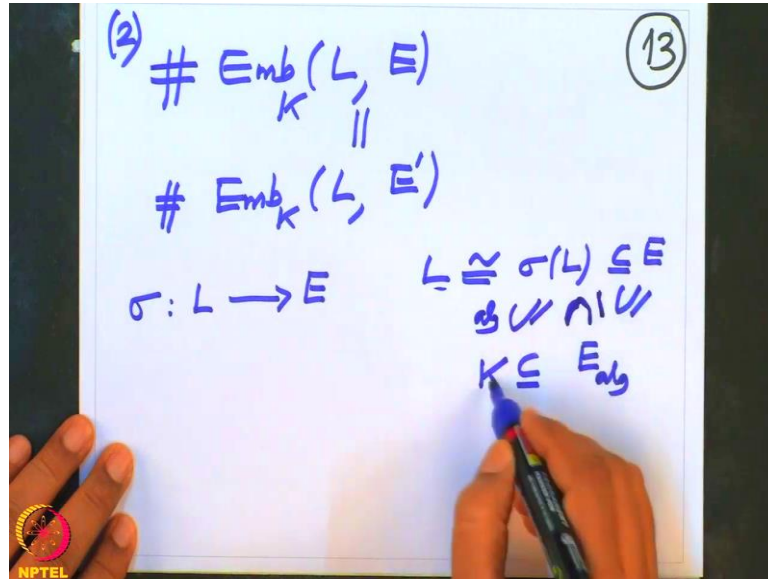 (2) # Emb_K (L, E)
13
||
# Emb_K (L, E')
σ : L ⟶ E
L ≅ σ(L) ⊆ E
alg ∪/ ∩| ∪/
K ⊆ E_alg
NPTEL